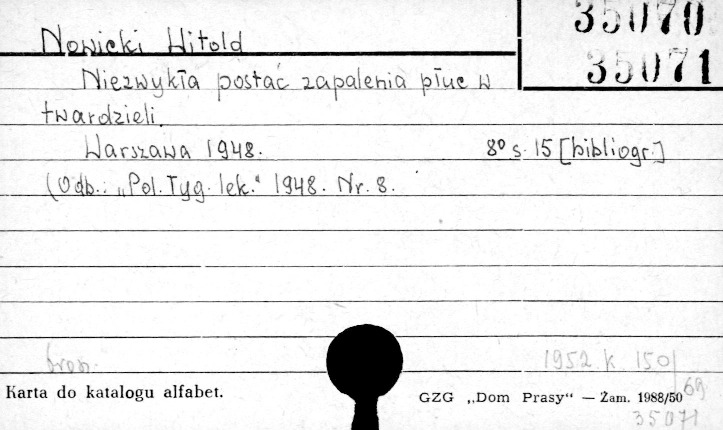 35070
35071
Nowicki Witold
Niezwykła postać zapalenia płuc w
twardzieli.
Warszawa 1948. 8° s. 15 [bibliogr.]
(Odb.: „Pol. Tyg. lek." 1948. Nr. 8.
brosz.
1952 K 150/
69
Karta do katalogu alfabet.
GZG „Dom Prasy" — Zam. 1988/50
35071